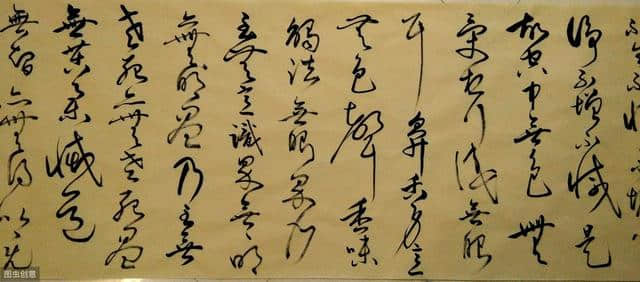 不生不滅不垢
淨不增不減是
故空中無色無
受想行識無眼
耳鼻舌身意
無色聲香味
觸法無眼界乃
至無意識界無明
無明盡乃至無
老死亦無老死盡
無苦集滅道
無智亦無得以无
图虫创意